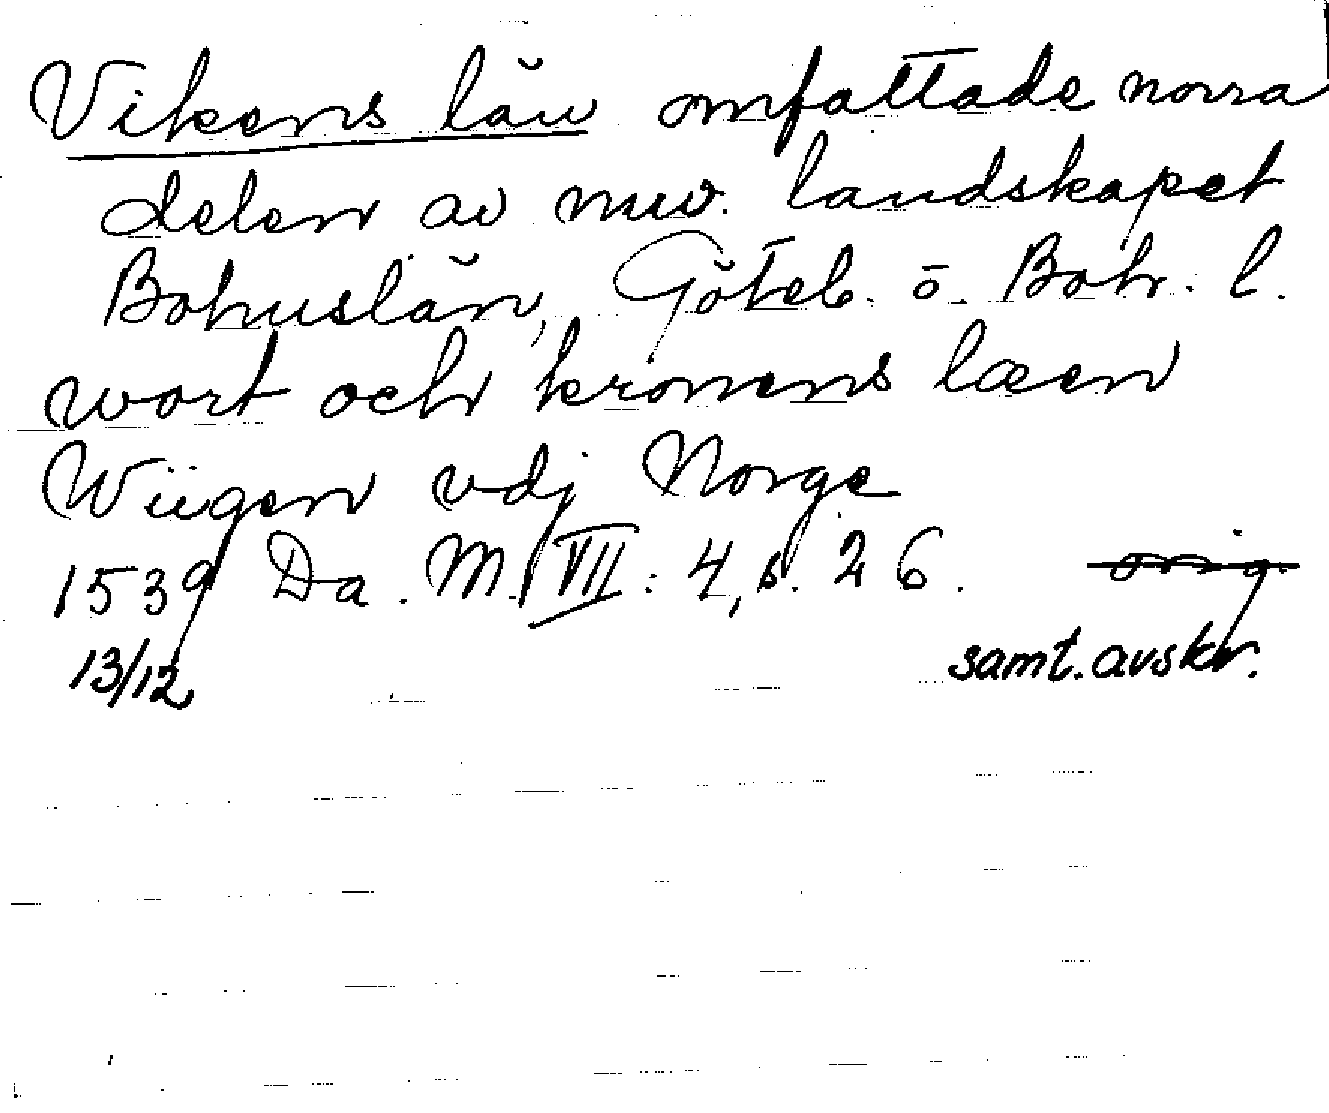 Vikens län omfattade norra
delen av nuv. landskapet
Bohuslän, Göteb. o. Boh. l.
wort och kronens læen
Wiigen vdj Norge
1539 Da. M. VII: 4, s. 26. orig.
13/12 samt. avskr.